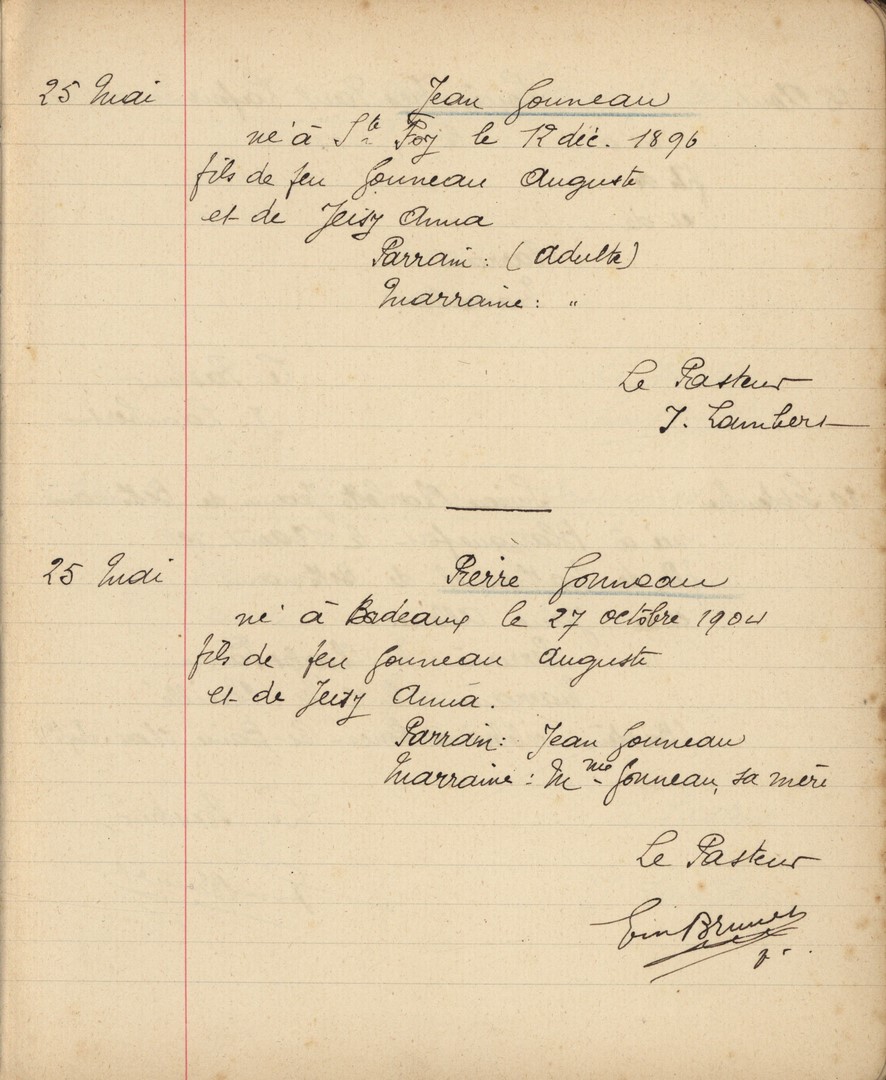 25 Mai Jean Gonneau
né à Ste Foy le 12 déc. 1896
fils de feu Gonneau Auguste
et de Anna
Parrain : (adulte)
Marraine : "
Le Pasteur
J. Lambert
25 Mai Pierre Gonneau
né à Bordeaux le 27 octobre 1904
fils de feu Gonneau Auguste
et de Anna.
Parrain : Jean Gonneau
Marraine : Mme Gonneau, sa mère
Le Pasteur
Em Brunet